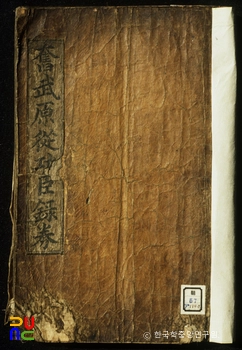 奮武原從功臣錄券
© 한국학중앙연구원